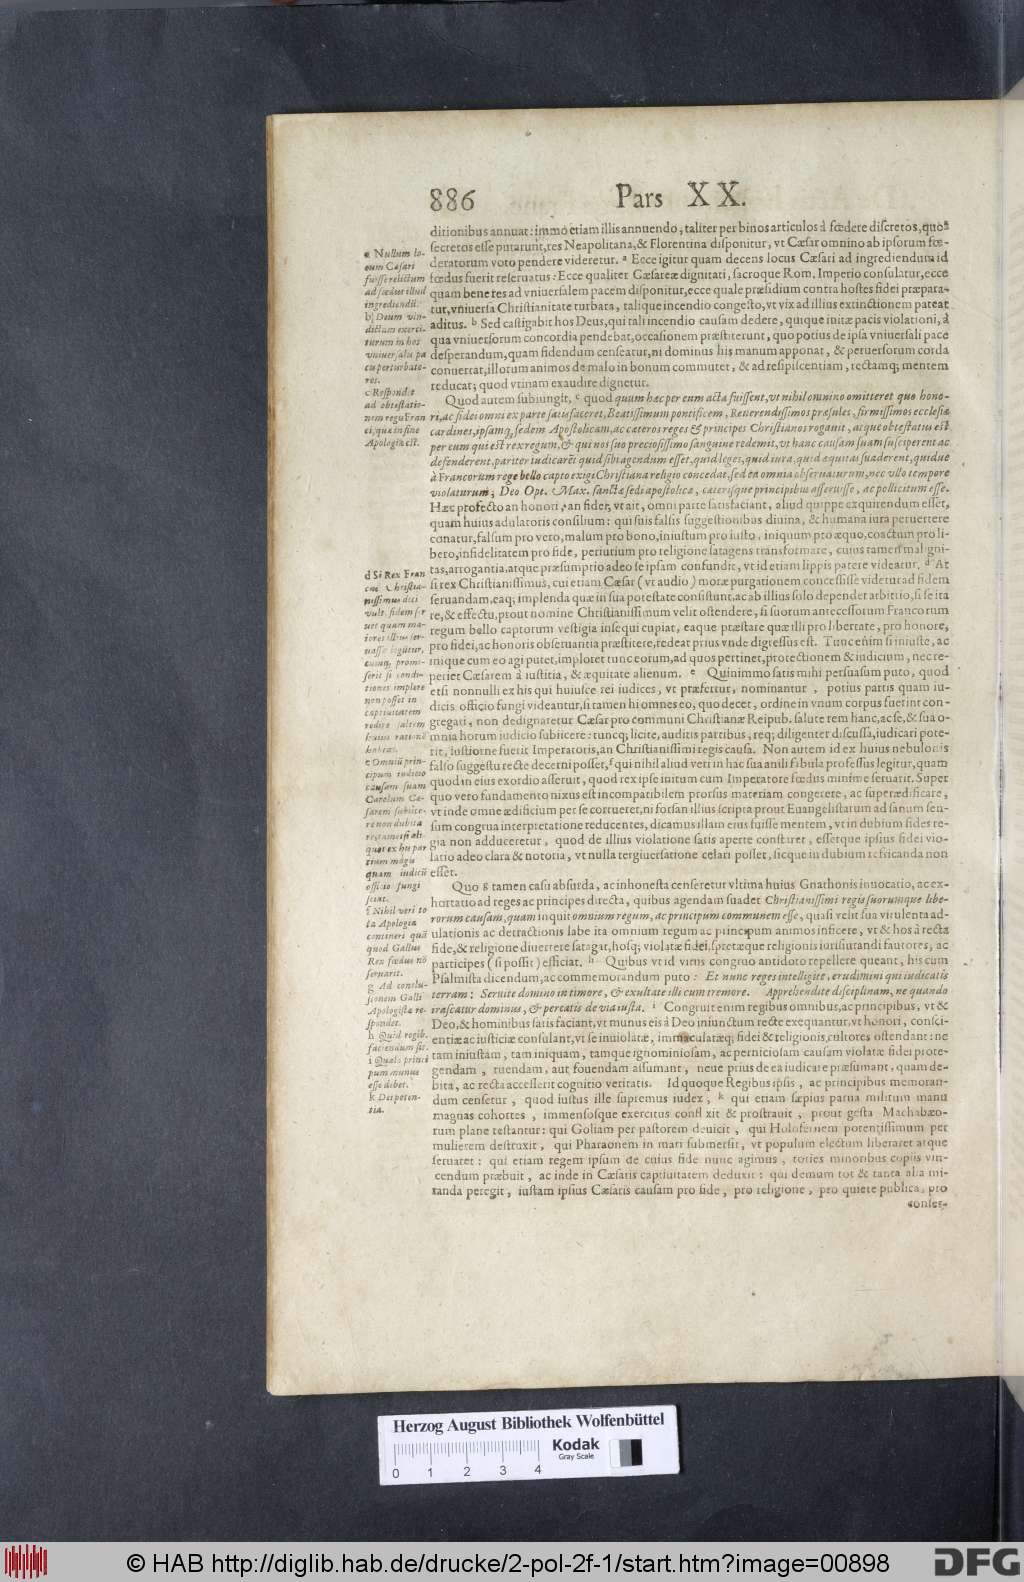 886 Pars XX.
ditionibus annuat: immo etiam illis annuendo, taliter per binos articulos à fœdere discretos, quos
secretos esse putarunt, res Neapolitana, & Florentina disponitur, vt Cæsar omnino ab ipsorum fœ-
deratorum voto pendere videretur. a Ecce igitur quam decens locus Cæsari ad ingrediendum id
fœdus fuerit reseruatus: Ecce qualiter Cæsareæ dignitati, sacroque Rom. Imperio consulatur, ecce
quam bene res ad vniuersalem pacem disponitur, ecce quale præsidium contra hostes fidei præpara-
tur, vniuersa Christianitate turbata, talique incendio congesto, vt vix ad illius extinctionem pateat
aditus. b Sed castigabit hos Deus, qui tali incendio causam dedere, quique initæ pacis violationi, à
qua vniuersorum concordia pendebat, occasionem præstiterunt, quo potius de ipsa vniuersali pace
desperandum, quam fidendum censeatur, ni dominus his manum apponat, & peruersorum corda
conuertat, illorum animos de malo in bonum commutet, & ad resipiscentiam, rectamq; mentem
reducat; quod vtinam exaudire dignetur.
Quod autem subiungit, c quod quum hæc per eum acta fuissent, vt nihil omnino omitteret quo hono-
ri, ac fidei omni ex parte satisfaceret, Beatissimum pontificem, Reuerendissimos præsules, firmissimos ecclesiæ
cardines, ipsamq; sedem Apostolicam, ac cæteros reges & principes Christianos rogauit, atque obtestatus est
per eum qui est rex regum, & qui nos suo preciosissimo sanguine redemit, vt hanc causam suam susciperent ac
defenderent, pariter iudicarēt quid sibi agendum esset, quid leges, quid iura, quid æquitas suaderent, quidue
à Francorum rege bello capto exigi Christiana religio concedat, sed ea omnia obseruaturum, nec vllo tempore
violaturum, Deo Opt. Max. sanctæ sedi apostolicæ, cæterisque principibus asseruisse, ac pollicitum esse.
Hæc profecto an honori, an fidei, vt ait, omni parte satisfaciant, aliud quippe exquirendum esset,
quam huius adulatoris consilium: qui suis falsis suggestionibus diuina, & humana iura peruertere
conatur, falsum pro vero, malum pro bono, iniustum pro iusto, iniquum pro æquo, coactum pro li-
bero, infidelitatem pro fide, periurium pro religione satagens transformare, cuius tamen maligni-
tas, arrogantia, atque præsumptio adeo se ipsam confundit, vt id etiam lippis patere videatur. d At
si rex Christianissimus, cui etiam Cæsar (vt audio) moræ purgationem concessisse videtur ad fidem
seruandam, eaq; implenda quæ in sua potestate consistunt, ac ab illius solo dependet arbitrio, si se ita
re, & effectu, prout nomine Christianissimum velit ostendere, si suorum antecessorum Francorum
regum bello captorum vestigia insequi cupiat, eaque præstare quæ illi pro libertate, pro honore,
pro fidei, ac honoris obseruantia præstitere, redeat prius vnde digressus est. Tunc enim si iniuste, ac
inique cum eo agi putet, imploret tunc eorum, ad quos pertinet, protectionem & iudicium, nec re-
periet Cæsarem à iustitia, & æquitate alienum. e Quinimmo satis mihi persuasum puto, quod
etsi nonnulli ex his qui huiusce rei iudices, vt præfertur, nominantur, potius partis quam iu-
dicis officio fungi videantur, si tamen hi omnes eo, quo decet, ordine in vnum corpus fuerint con-
gregati, non dedignaretur Cæsar pro communi Christianæ Reipub. salute rem hanc, ac se, & sua o-
mnia horum iudicio subiicere: tuncq; licite, auditis partibus, req; diligenter discussa, iudicari pote-
rit, iustior ne fuerit Imperatoris, an Christianissimi regis causa. Non autem id ex huius nebulonis
falso suggestu recte decerni posset, f qui nihil aliud veri in hac sua anili fabula professus legitur, quam
quod in eius exordio asseruit, quod rex ipse initum cum Imperatore fœdus minime seruarit. Super
quo vero fundamento nixus est incompatibilem prorsus materiam congerere, ac superædificare,
vt inde omne ædificium per se corrueret, ni forsan illius scripta prout Euangelistarum ad sanum sen-
sum congrua interpretatione reducentes, dicamus illam eius fuisse mentem, vt in dubium fides re-
gia non adduceretur, quod de illius violatione satis aperte constiret, essetque ipsius fidei vio-
latio adeo clara & notoria, vt nulla tergiuersatione celari posset, sicque in dubium refricanda non
esset.
Quo g tamen casu absurda, ac inhonesta censeretur vltima huius Gnathonis inuocatio, ac ex-
hortatio ad reges ac principes directa, quibus agendam suadet Christianissimi regis suorumque libe-
rorum causam, quam inquit omnium regum, ac principum communem esse, quasi velit sua virulenta ad-
ulationis ac detractionis labe ita omnium regum ac principum animos inficere, vt & hos à recta
fide, & religione diuertere satagat, hosq; violatæ fidei, spretæque religionis iurisiurandi fautores, ac
participes (si possit) efficiat. h Quibus vt id virus congruo antidoto repellere queant, his cum
Psalmista dicendum, ac commemorandum puto: Et nunc reges intelligite, erudimini qui iudicatis
terram: Seruite domino in timore, & exultate illi cum tremore. Apprehendite disciplinam, ne quando
irascatur dominus, & pereatis de via iusta. i Congruit enim regibus omnibus, ac principibus, vt &
Deo, & hominibus satis faciant, vt munus eis à Deo iniunctum recte exequantur, vt honori, consci-
entiæ ac iusticiæ consulant, vt se inuiolatæ, immaculatæq; fidei & religionis, cultores ostendant: ne
tam iniustam, tam iniquam, tamque ignominiosam, ac perniciosam causam violatæ fidei prote-
gendam, tuendam, aut fouendam assumant, neue prius de ea iudicare præsumant, quam de-
bita, ac recta accesserit cognitio veritatis. Id quoque Regibus ipsis, ac principibus memoran-
dum censetur, quod iustus ille supremus iudex, k qui etiam sæpius parua militum manu
magnas cohortes, immensosque exercitus conflixit & prostrauit, prout gesta Machabæo-
rum plane testantur: qui Goliam per pastorem deuicit, qui Holofernem potentissimum per
mulierem destruxit, qui Pharaonem in mari submersit, vt populum electum liberaret atque
seruaret: qui etiam regem ipsum de cuius fide nunc agimus, toties minoribus copiis vin-
cendum præbuit, ac inde in Cæsaris captiuitatem deduxit: qui demum tot & tanta alia mi-
randa peregit, iustam ipsius Cæsaris causam pro fide, pro religione, pro quiete publica, pro
conser-
a Nullum lo-
cum Cæsari
fuisse relictum
ad fœdus illud
ingrediendū.
b Deum vin-
dictam exerci-
turum in hos
vniuersalis pa
cis perturbato-
res.
c Respondet
ad obtestatio-
nem regis Fran
ci, quæ in fine
Apologiæ est.
d Si Rex Fran
cus Christia-
nissimus dici
vult, fidem ser
uet quam ma-
iores illius ser-
uasse legūtur,
cumq; promi-
serit si condi-
tiones implere
non posset in
captiuitatem
redire saltem
huius rationē
habeat.
e Omniū prin-
cipum iudicio
causam suam
Carolum Cæ-
sarem subiice-
re non dubita
re, tametsi ali-
quot ex his par
tium magis
quam iudicū
officio fungi
sciat.
f Nihil veri to
ta Apologia
contineri quā
quod Gallus
Rex fœdus nō
seruarit.
g Ad conclu-
sionem Galli
Apologistæ re-
spondet.
h Quid regib.
faciendum sit.
i Quale princi
pum munus
esse debet.
k Dei poten-
tia.
Herzog August Bibliothek Wolfenbüttel
Kodak
Gray Scale
0 1 2 3 4
© HAB http://diglib.hab.de/drucke/2-pol-2f-1/start.htm?image=00898
DFG